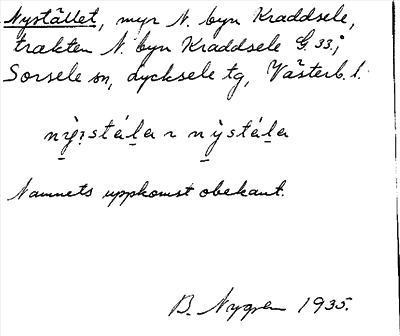 Nystället, myr N. byn Kraddsele,
trakten N. byn Kraddsele G. 33;
Sorsele sn, Lycksele tg, Västerb. l.
Namnets uppkomst obekant.
B. Nygren 1935.